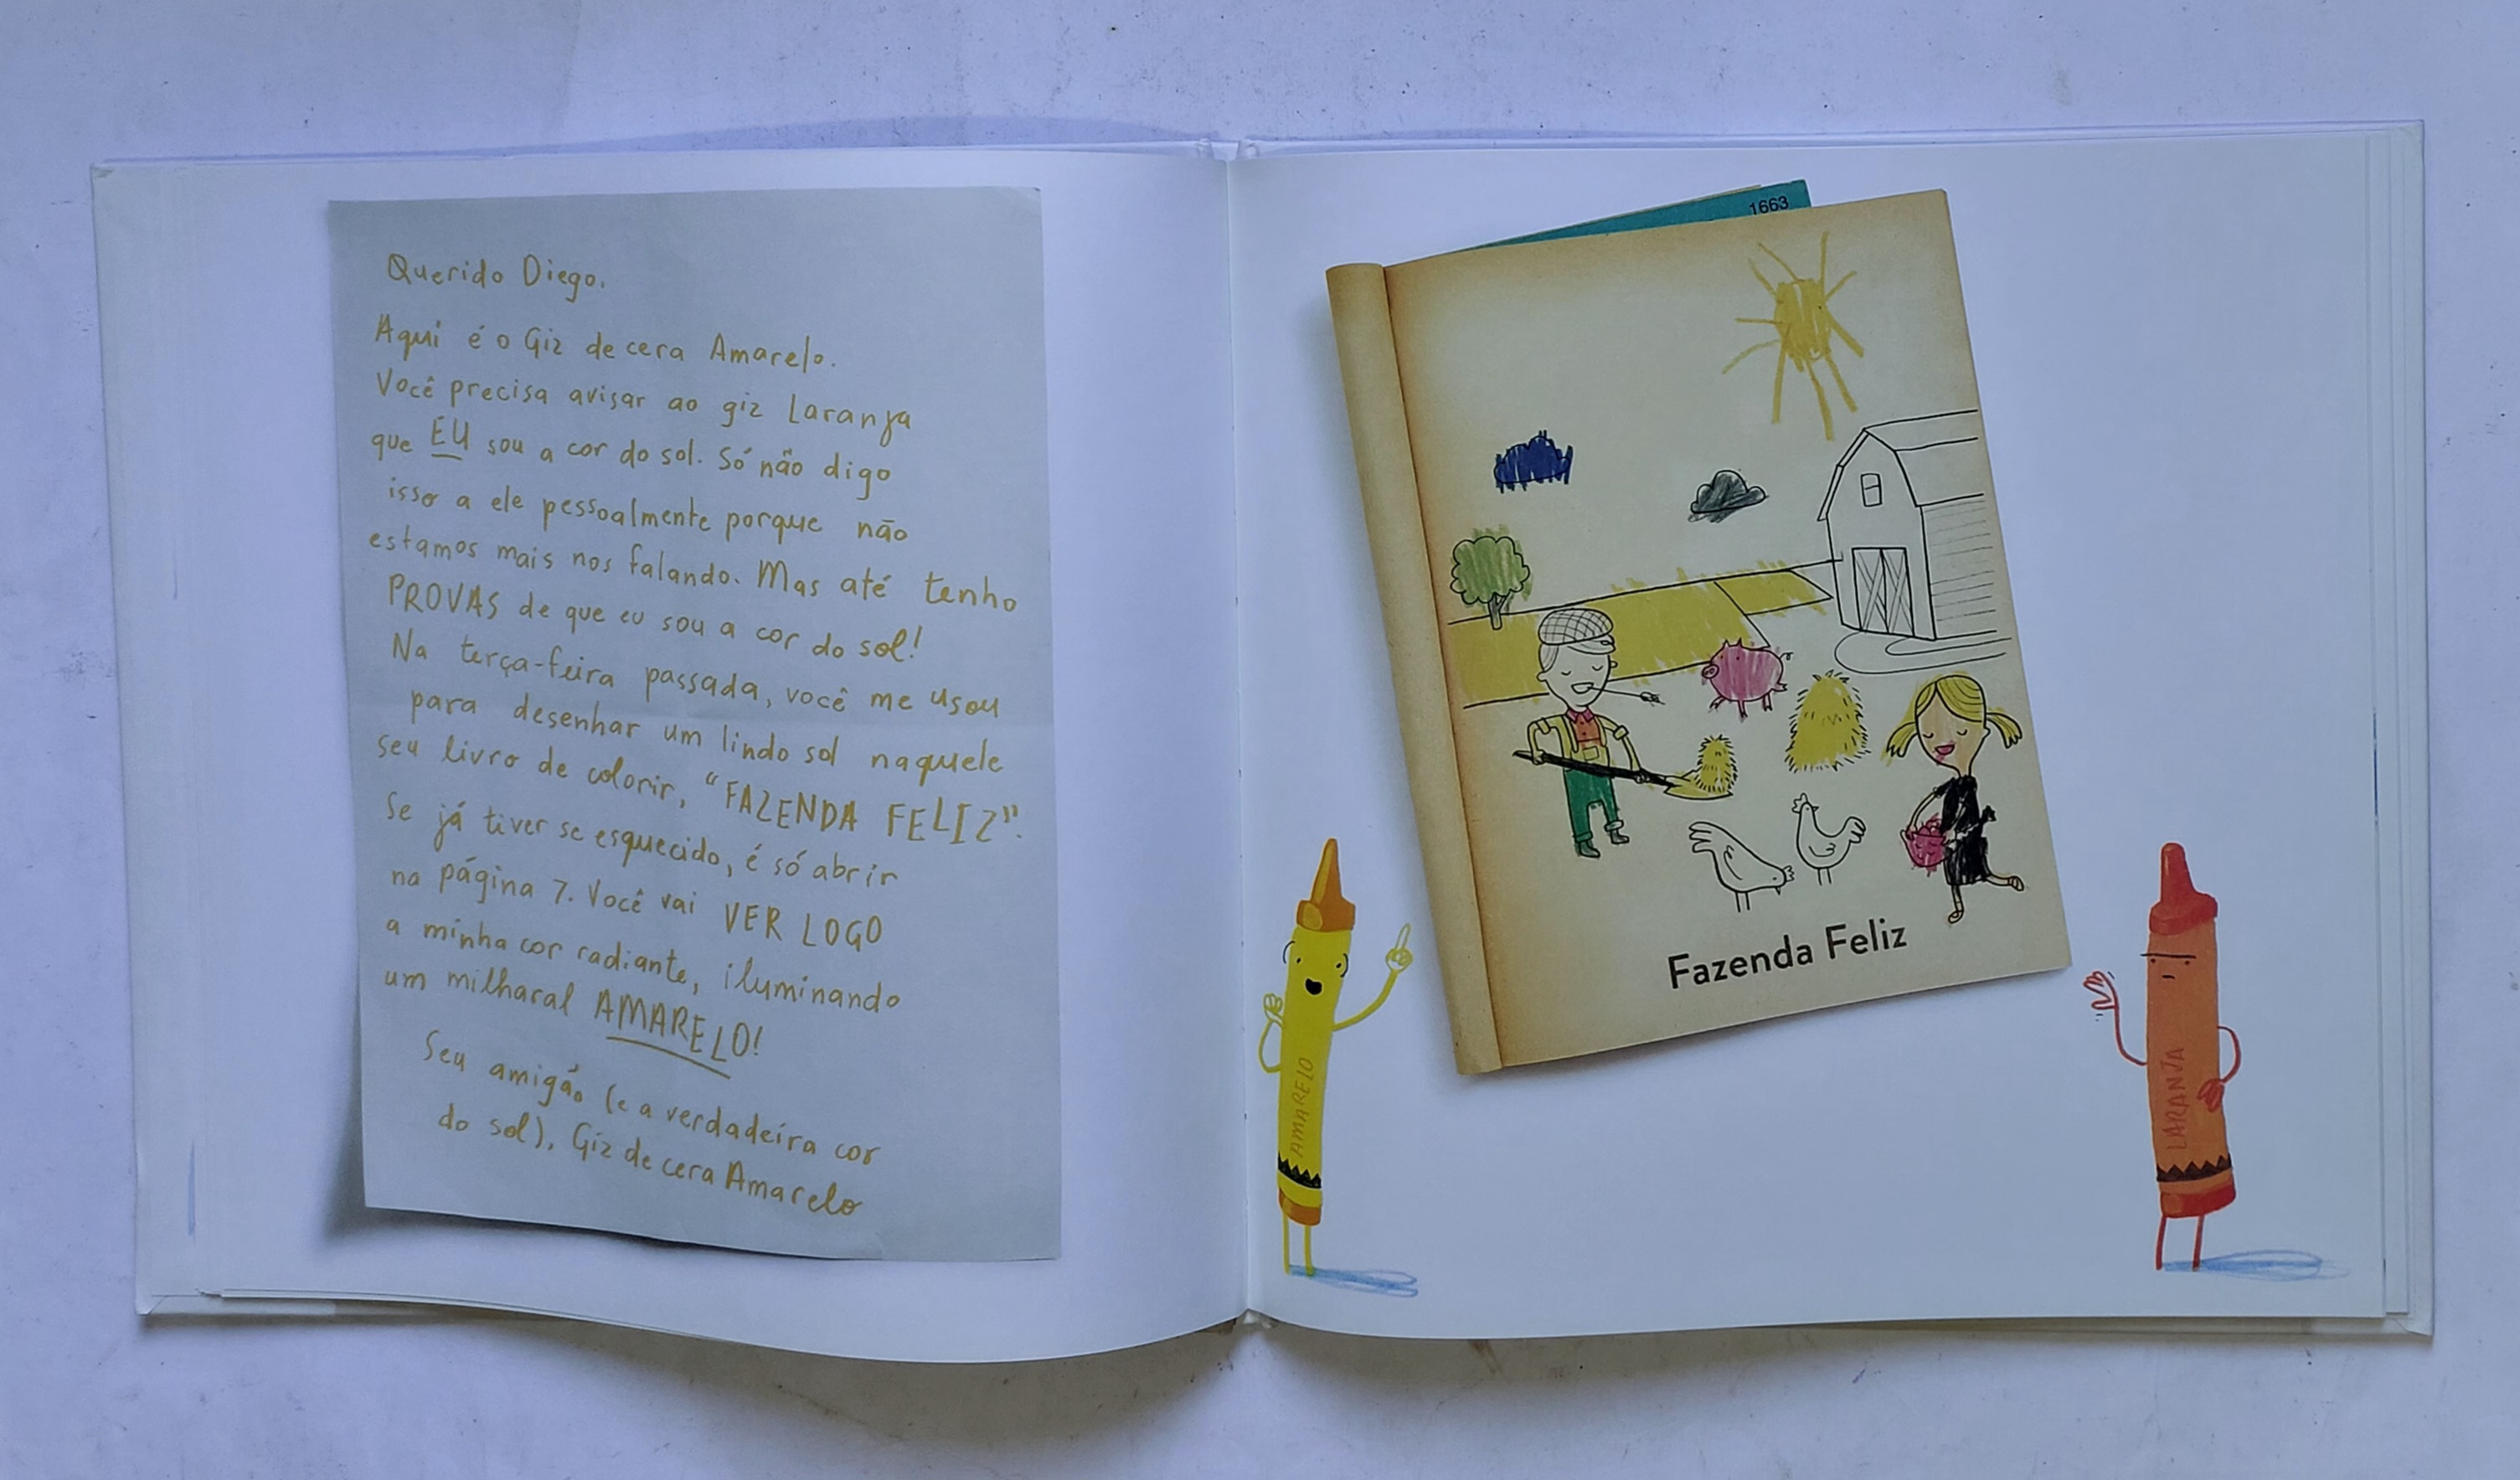 Querido Diego.
Aqui é o Giz de cera Amarelo.
Você precisa avisar ao giz Laranja
que EU sou a cor do sol. Só não digo
isso a ele pessoalmente porque não
estamos mais nos falando. Mas até tenho
PROVAS de que eu sou a cor do sol!
Na terça-feira passada, você me usou
para desenhar um lindo sol naquele
seu livro de colorir, "FAZENDA FELIZ".
Se já tiver se esquecido, é só abrir
na página 7. Você vai VER LOGO
a minha cor radiante, iluminando
um milharal AMARELO!
Seu amigão (e a verdadeira cor
do sol), Giz de cera Amarelo
1663
Fazenda Feliz
AMARELO
LARANJA